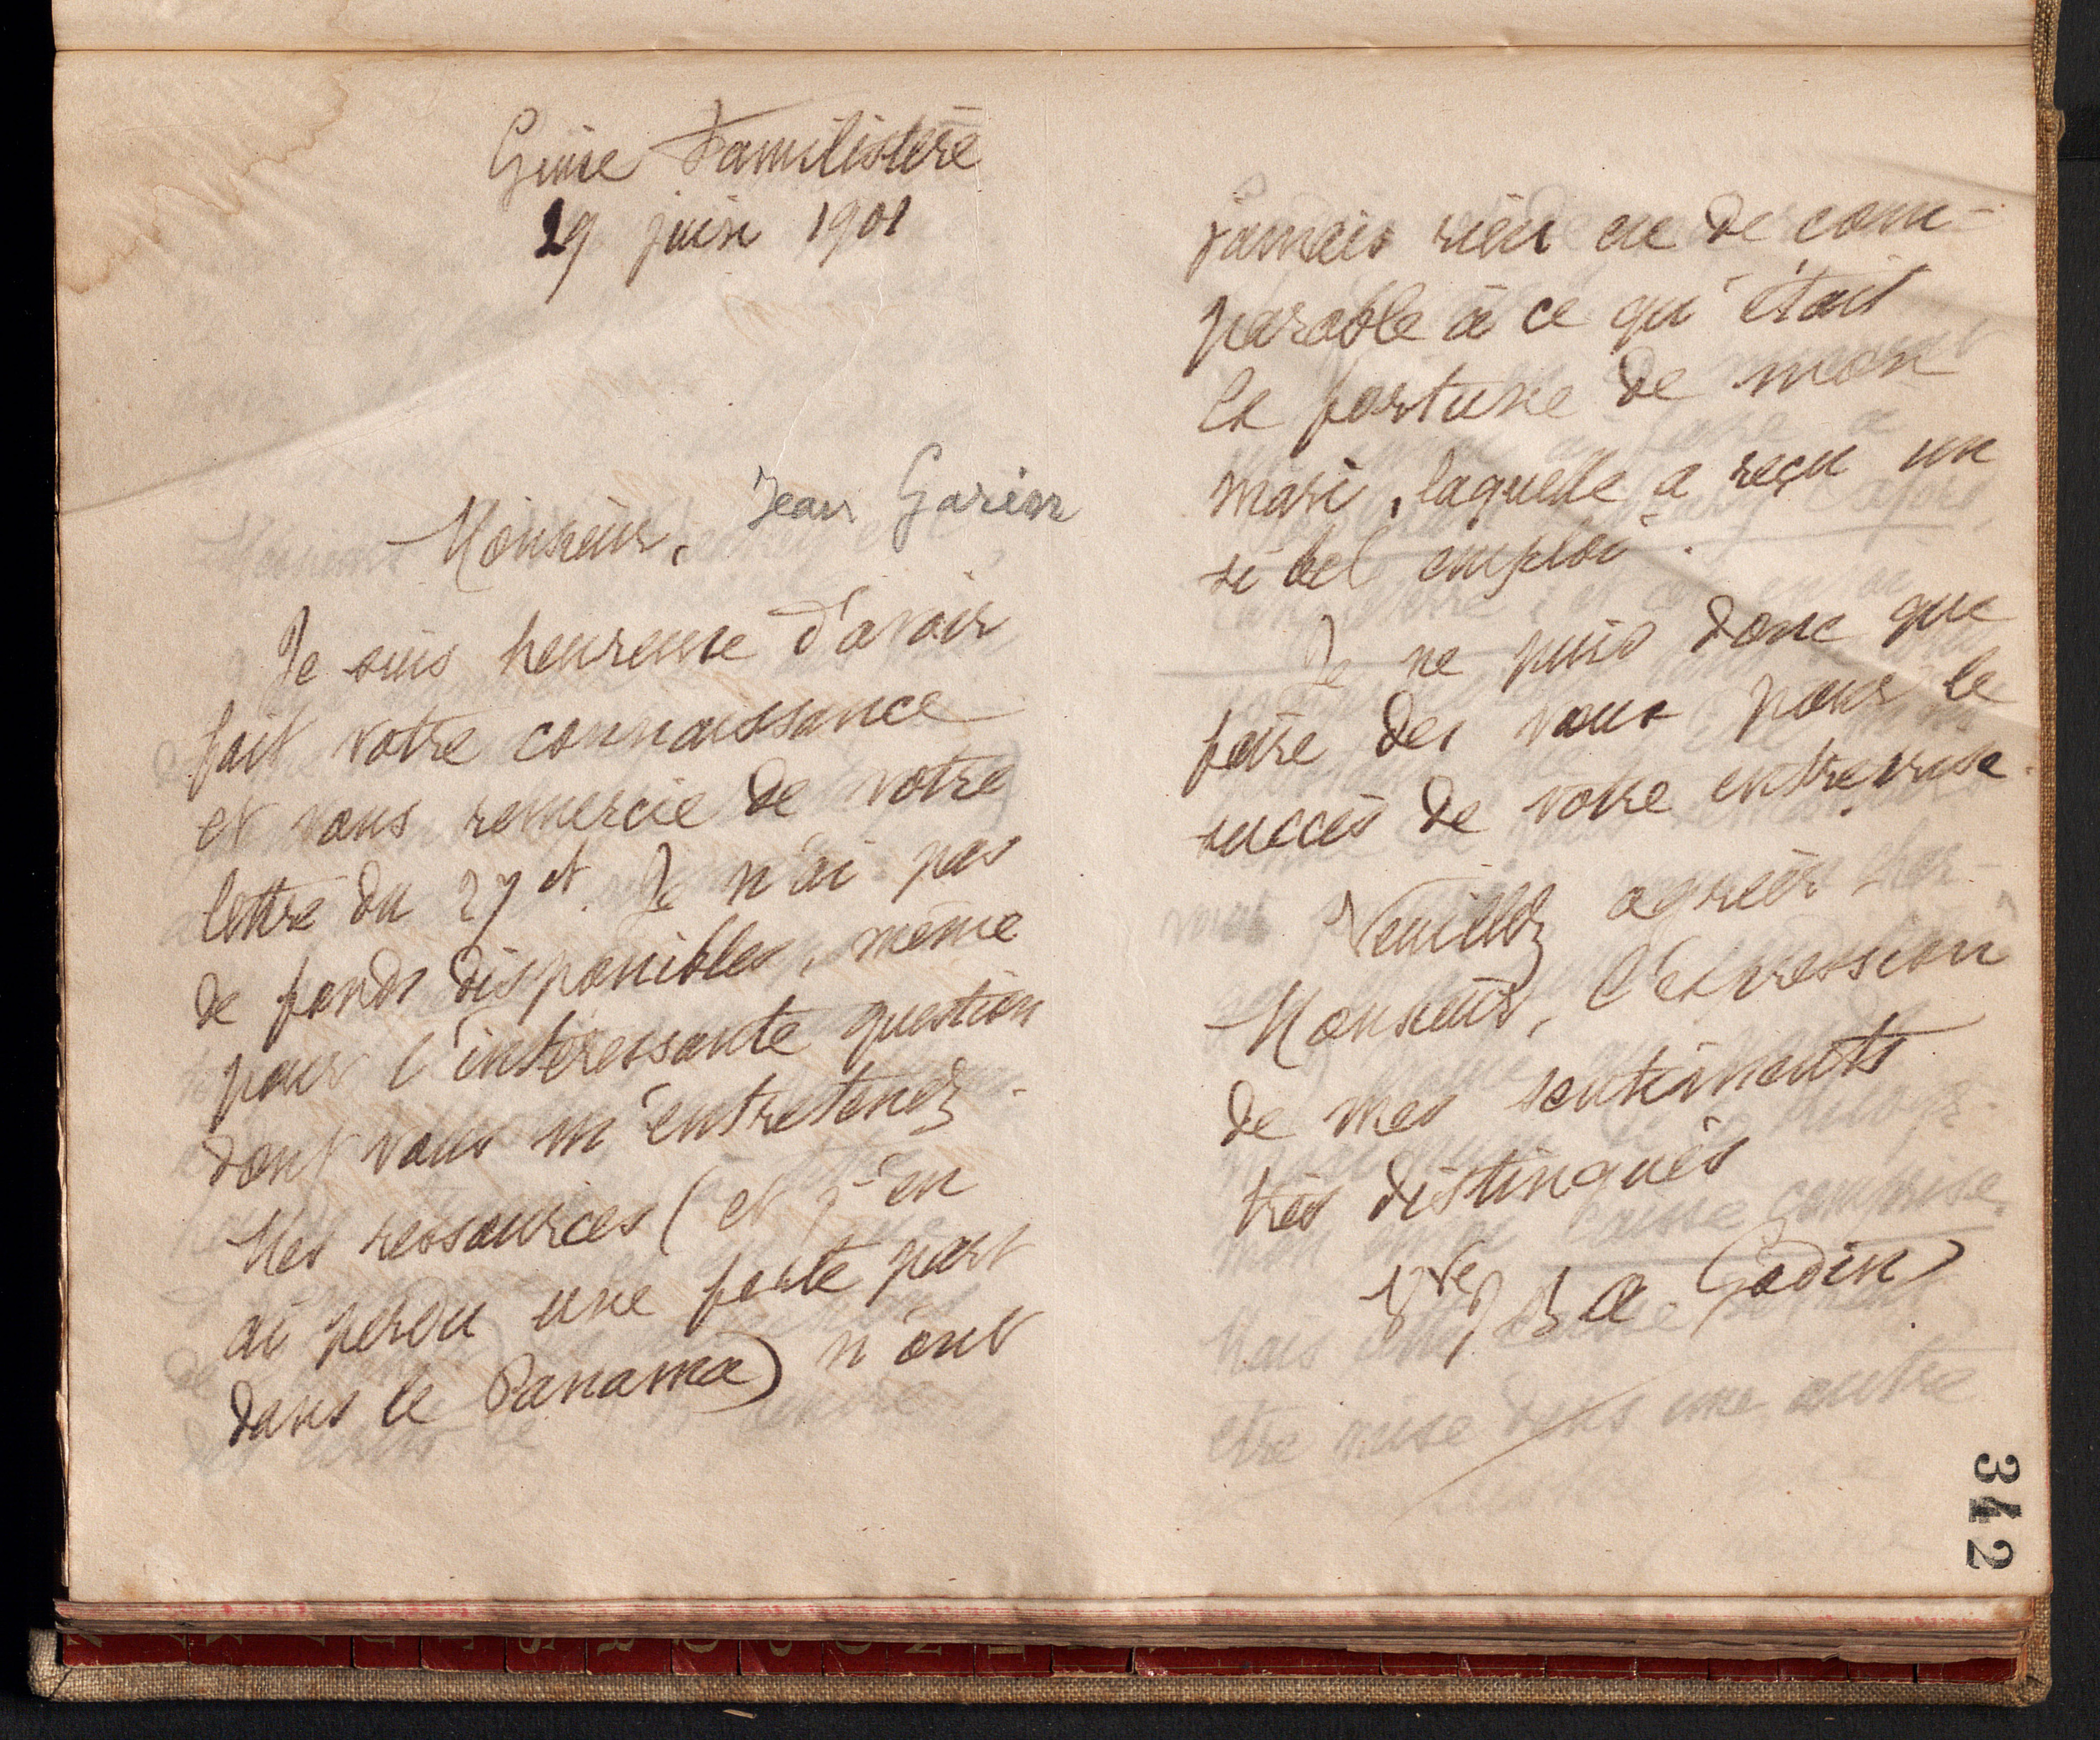 Guise Familistère
29 juin 1901
Monsieur, Jean Garin
Je suis heureuse d'avoir
fait votre connaissance
et vous remercie de votre
lettre du 27 ct. Je n'ai pas
de fonds disponibles, même
pour l'intéressante question
dont vous m'entretenez.
Mes ressources (et j'en
ai perdu une forte part
dans le Panama) n'ont
jamais rien eu de com-
parable à ce qu'était
la fortune de mon
mari, laquelle a reçu un
si bel emploi.
Je ne puis donc que
faire des vœux pour le
succès de votre entreprise.
Veuillez agréer
Monsieur, l'expression
de mes sentiments
très distingués
Vve Godin
342